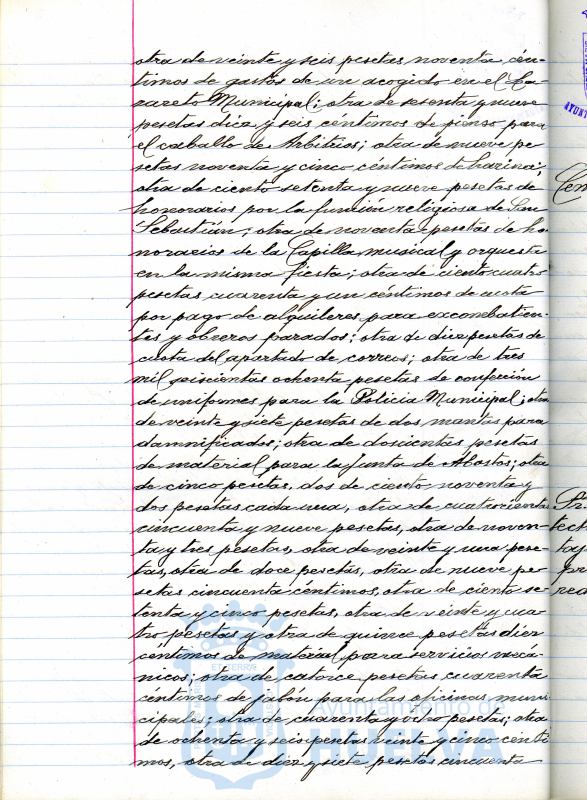 otra de veinte y seis pesetas noventa cén-
timos de gastos de un acogido en el La-
zareto Municipal; otra de sesenta y nueve
pesetas diez y seis céntimos de pienso para
el caballo de Arbitrios; otra de nueve pe
setas noventa y cinco céntimos de harina;
otra de ciento setenta y nueve pesetas de
honorarios por la función religiosa de San
Sebastián; otra de noventa pesetas de ho
norarios de la Capilla musical y orquesta
en la misma fiesta; otra de ciento cuatro
pesetas cuarenta y un céntimos de cuota
por pago de alquileres para excombatien-
tes y obreros parados; otra de diez pesetas de
cuota del apartado de correos; otra de tres
mil seiscientas ochenta pesetas de confección
de uniformes para la Policia Municipal; otra
de veinte y siete pesetas de dos mantas para
damnificados; otra de doscientas pesetas
de material para la Junta de Abastos; otra
de cinco pesetas, dos de ciento noventa y
dos pesetas cada una, otra de cuatrocientas
cincuenta y nueve pesetas, otra de noven-
ta y tres pesetas, otra de veinte y una pese-
tas, otra de doce pesetas, otra de nueve pe
setas cincuenta céntimos, otra de ciento se-
tenta y cinco pesetas, otra de veinte y cua-
tro pesetas y otra de quince pesetas diez
céntimos de material para servicios mecá-
nicos; otra de catorce pesetas cuarenta
céntimos de jabón para las oficinas muni
cipales; otra de cuarenta y ocho pesetas; otra
de ochenta y seis pesetas veinte y cinco cénti
mos, otra de diez y siete pesetas cincuenta
Ayuntamiento de
HUELVA